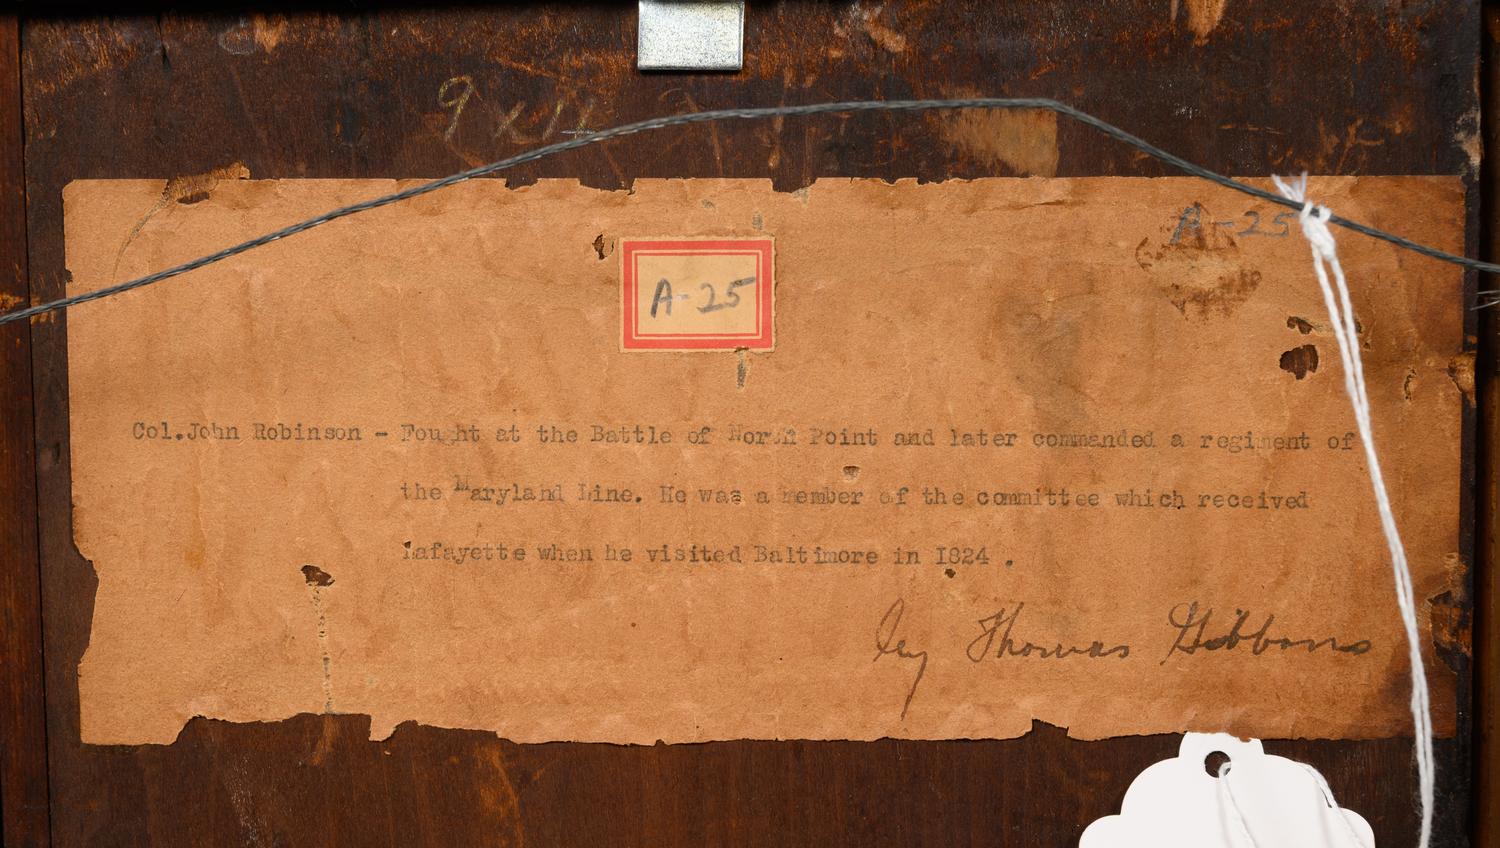 9 x 11
A-25
A-25
Col.John Robinson - Fought at the Battle of North Point and later commanded a regiment of
the Maryland Line. He was a member of the committee which received
Lafayette when he visited Baltimore in I824 .
by Thomas Gibbons